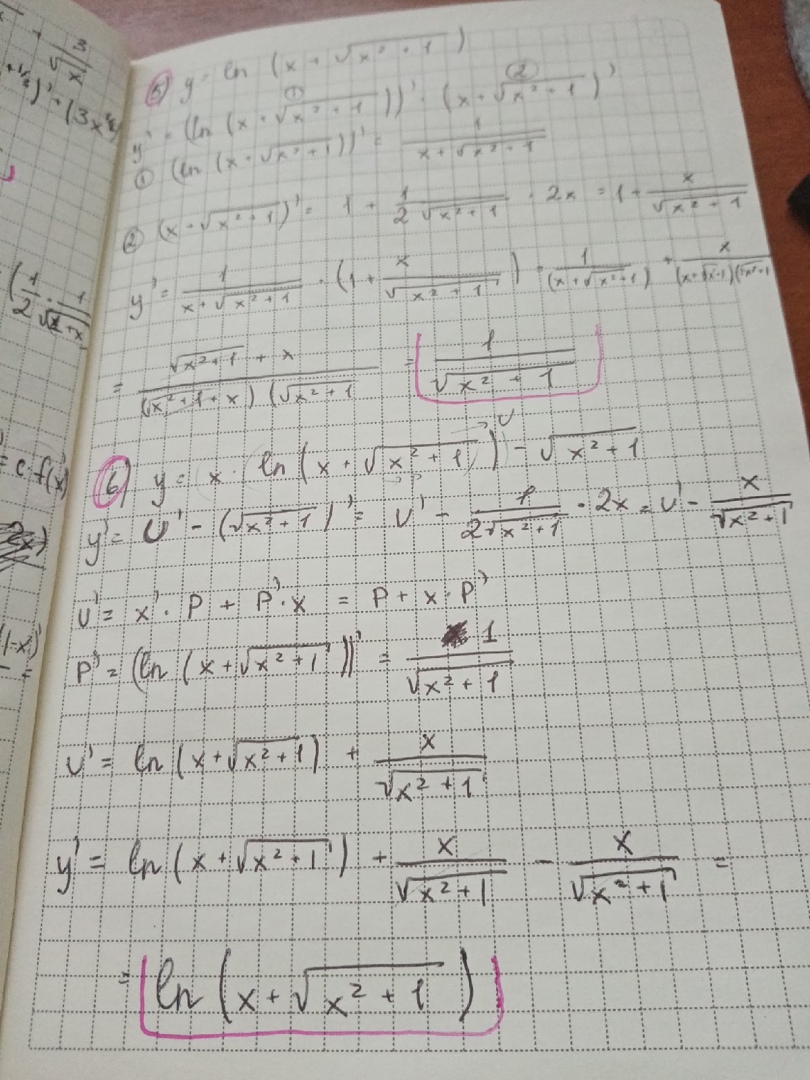 + 3/√x
+ 1/2)' + (3x
5) y = ln (x + √(x² + 1))
y' = (ln (x + √(x² + 1)))' · (x + √(x² + 1))'
① ②
① (ln (x + √(x² + 1)))' = 1/(x + √(x² + 1))
② (x + √(x² + 1))' = 1 + 1/(2√(x² + 1)) · 2x = 1 + x/√(x² + 1)
y' = 1/(x + √(x² + 1)) · (1 + x/√(x² + 1)) = 1/(x + √(x² + 1)) + x/((x + √(x² + 1))(√(x² + 1)
= (√(x² + 1) + x)/((√(x² + 1) + x)(√(x² + 1) = 1/√(x² + 1)
6) y = x · ln (x + √(x² + 1)) - √(x² + 1)
U
y' = U' - (√(x² + 1))' = U' - 1/(2√(x² + 1)) · 2x = U' - x/√(x² + 1)
= c f(x)'
U' = x' · P + P' · x = P + x · P'
P' = (ln (x + √(x² + 1)))' = 1/√(x² + 1)
(1-x)'
U' = ln (x + √(x² + 1)) + x/√(x² + 1)
y' = ln (x + √(x² + 1)) + x/√(x² + 1) - x/√(x² + 1) =
= ln (x + √(x² + 1))